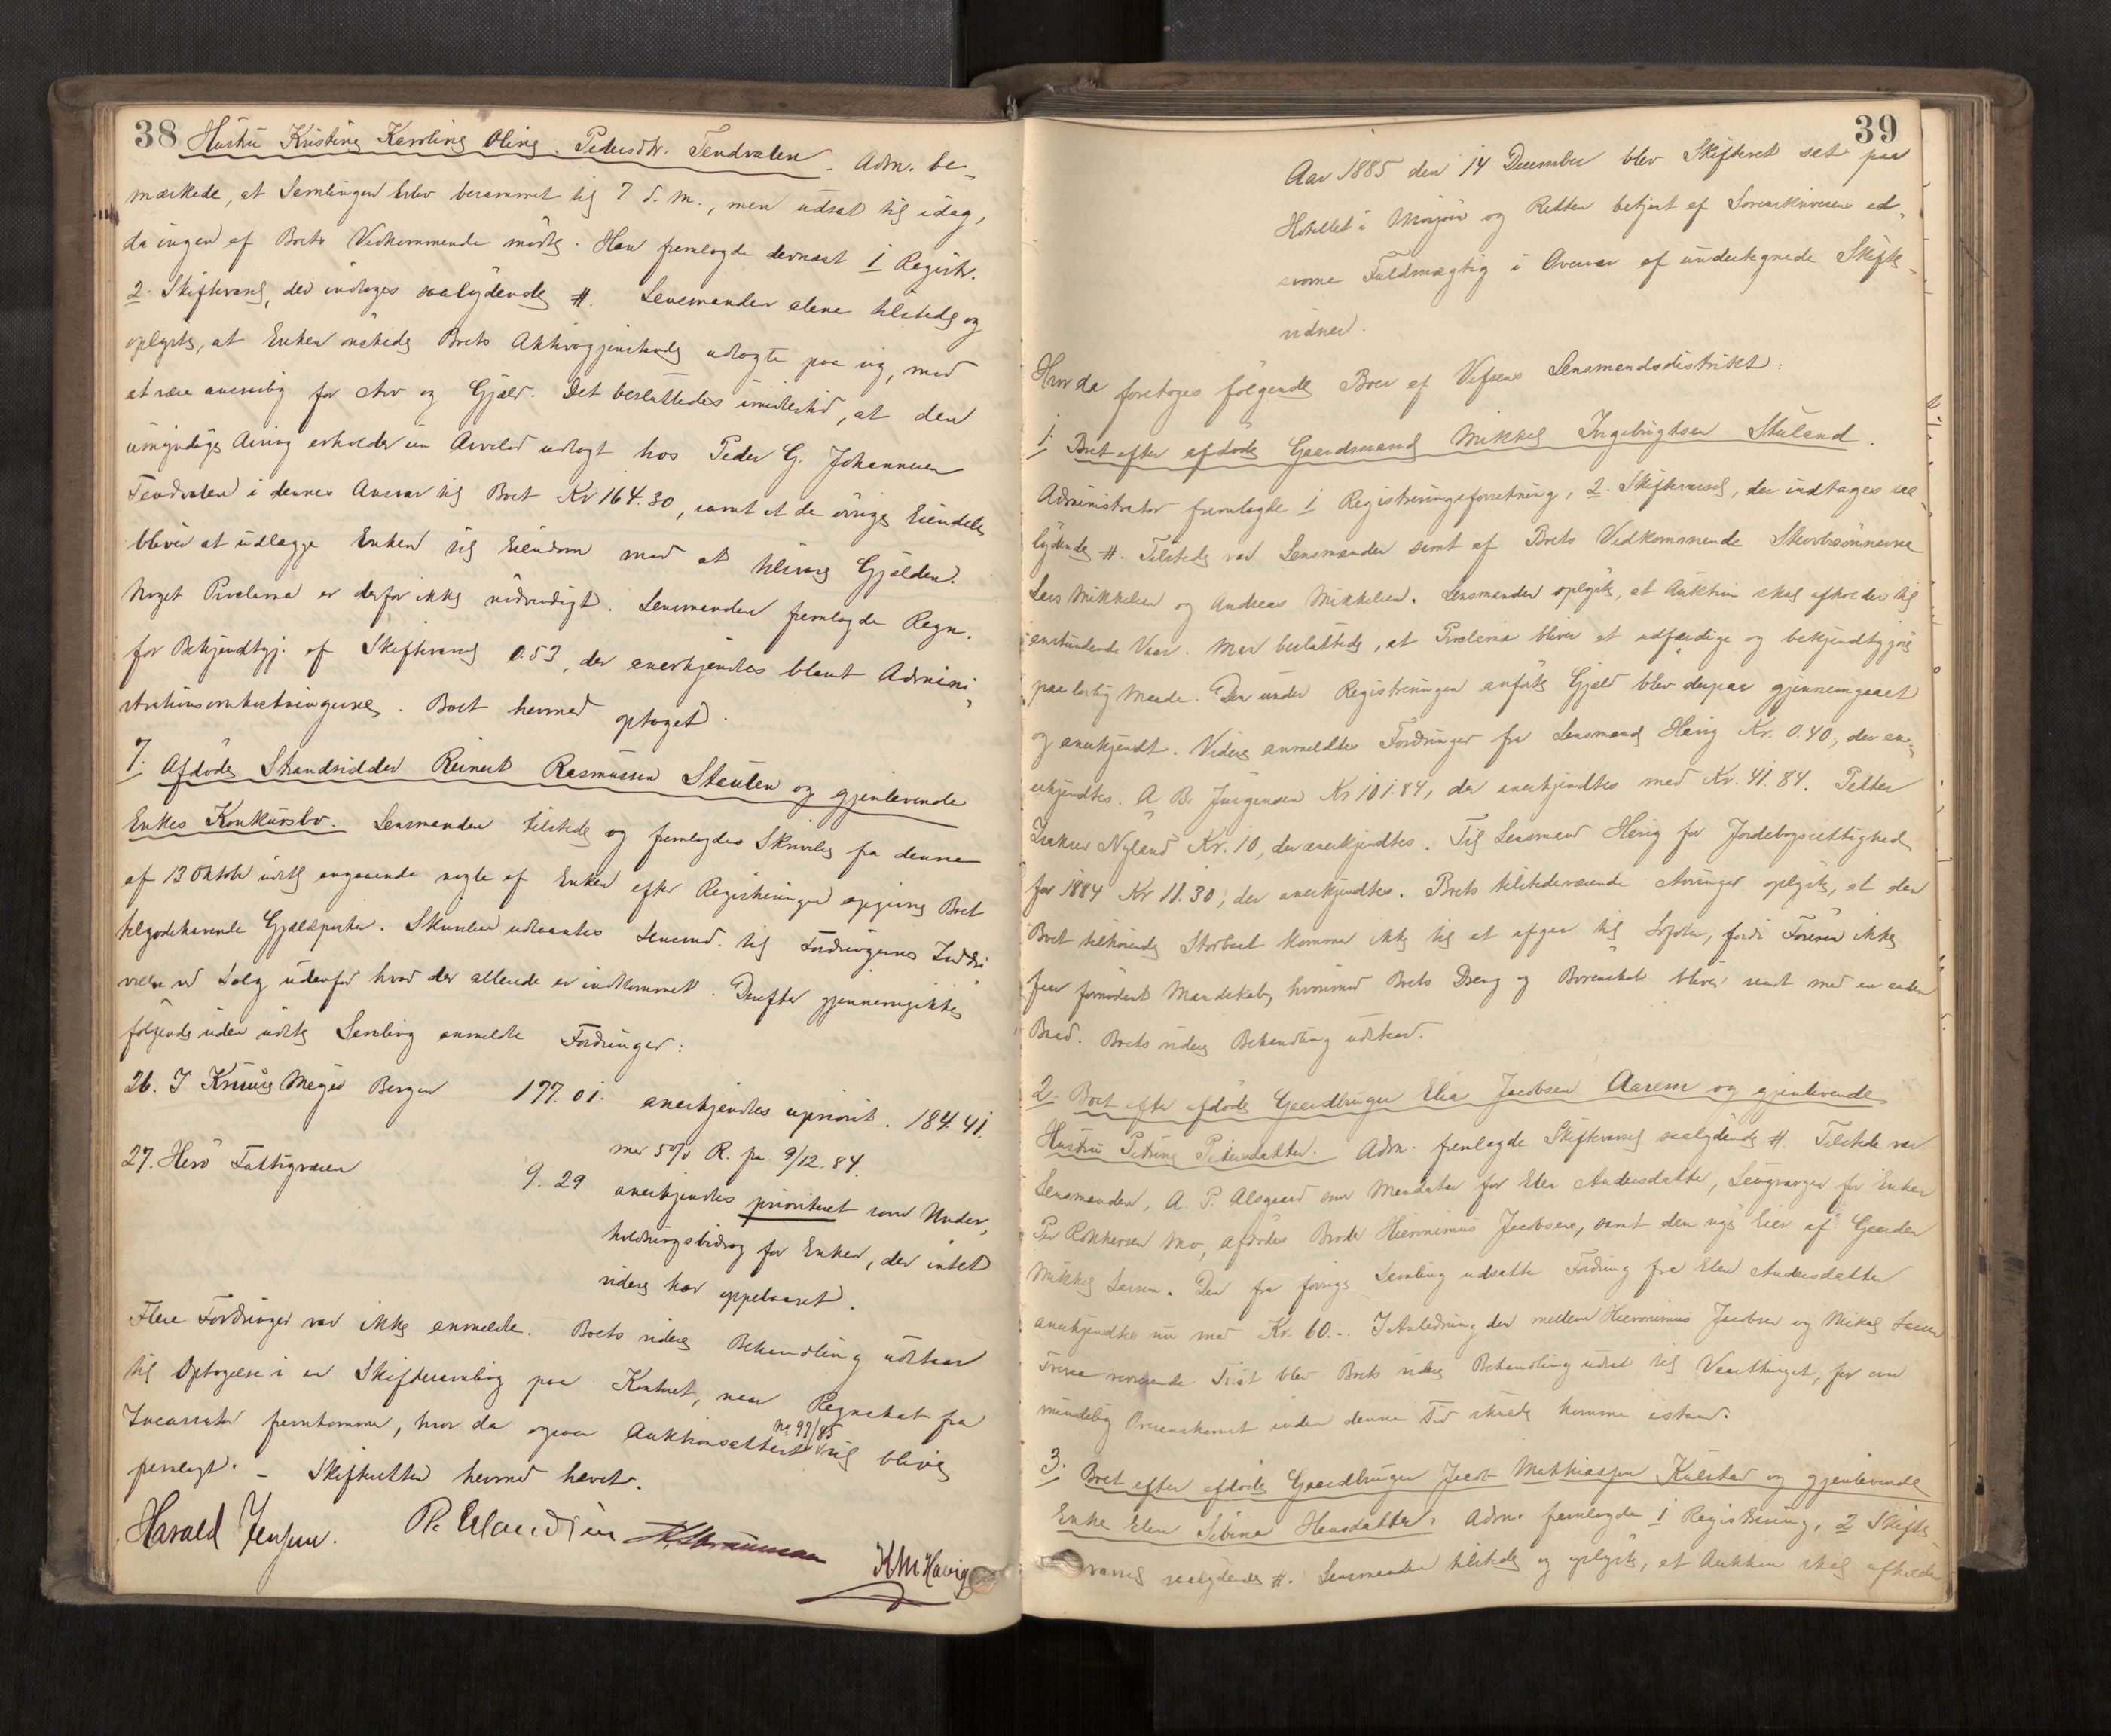 38 Hustru Kristine Karoline Oline Pedersdtr. Tendvalen. Adm. be-
mærkede, at Samlingen blev berammet til 7 d. M., men udsat til idag,
da ingen af Boets Vedkommende mødte. Han fremlagde dernæst 1 Registr.
2. Skiftevarsel, der indtages saalydende #. Lensmanden alene tilstede og
oplyste, at Enken ønskede Boets Aktivagjenstande udlagte paa sig, mod
at være ansvarlig for Arv og Gjæld. Det besluttedes imidlertid, at den
umyndige Arving erholder sin Arvelod udlagt hos Peder G. Johannesen
Tendvalen i dennes Ansvar til Boet Kr 164.30, samt at de øvrige Eiendele
bliver at udlægge Enken til Eiendom mod at tilsvare Gjælden.
Noget Proclama er derfor ikke nødvendigt. Lensmanden fremlagde Regn.
for Bekjendtgj. af Skiftevarsel 0.53, der anerkjendtes blant Admini-
strationsomkostningerne. Boet hermed optaget.
7. Afdøde Strandsidder Reinert Rasmussen Stauten og gjenlevende
Enkes Konkursbo. Lensmanden tilstede og fremlagdes Skrivelse fra denne
af 13 Oktober sidste angaaende nogle af Enken efter Registreringen opgivne Boet
tilgodehavende Gjældsposter. Skrivelsen udlaantes Lensmd. til Fordringernes Inddri-
velse ved Salg udenfor hvad der allerede er indkommet. Derefter gjennemgikkes
følgende siden sidste Samling anmeldte Fordringer:
26. J Meyer Bergen 177.01. anerkjendtes upriorit. 184.41.
mer 5% R. fra 9/12.84.
27. Herø Fattigvæsen 9.29 anerkjendtes prioriteret som Under-
holdningsbidrag for Enken, der intet
videre har oppebaaret.
Flere Fordringer var ikke anmeldte. Boets videre Behandling udstaar
til Optagelse i en Skiftesamling paa Kontoret, naar Regnskab fra
Incassator fremkommer, hvor da ogsaa Auktionsattest No 97/85 vil blive
fremlagt. – Skifteretten hermed hævet.
Harald Jensen. P. Elandsen KM Havig
39
Aar 1885 den 14 December blev Skifteret sat paa
Hotellet i Mosjøen og Retten betjent af Sorenskriverens ed-
svorne Fuldmægtig i Overvær af undertegnede Skifte-
vidner.
Hvor da foretoges følgende Boer af Vefsens Lensmandsdistrikt:
1. Boet efter afdøde Gaardmand Mikkel Ingebrigtsen Stuland.
Administrator fremlagde 1 Registreringsforretning, 2. Skiftevarsel, der indtages saa-
lydende #. Tilstede var Lensmanden samt af Boets Vedkommende Stervbosønnerne
Lars Mikkelsen og Andreas Mikkelsen. Lensmanden oplyste, at Auktion skal afholdes til
anstundende Vaar. Man besluttede, at Proclama bliver at udfærdige og bekjendtgjøre
paa lovlig Maade. Den under Registreringen anførte Gjæld blev derpaa gjennemgaaet
og anerkjendt. Videre anmeldtes Fordringer fra Lensmand Havig Kr. 0.40, der an-
erkjendtes. A B. Jürgensen Kr 101.84, der anerkjendtes med Kr. 41.84. Petter
Isaksen Nyland Kr. 10, der anerkjendtes. Til Lensmand Havig for Jordebogsrettighed
for 1884 Kr 11.30, der anerkjendtes. Boets tilstedeværende Arvinger oplyste, at den
Boet tilhørende Storbaad kommer ikke til at afgaa til Lofoten, fordi Føreren ikke
faar fornødent Mandskab, hvorimod Boets Dreng og Børnskab bliver sendt med en anden
Baad. Boets videre Behandling udstaar.
2. Boet efter afdøde Gaardbruger Elias Jacobsen Aanes og gjenlevende
Hustru Petrine Pedersdatter. Adm. fremlagde Skiftevarsel saalydende #. Tilstede var
Lensmanden, A. P. Alsgaard som Mandatar for Elen Andersdatter, Laugværge for Enken
Per Mo, afdødes Broder Hieronimus Jacobsen, samt den nye Eier af Gaarden
Mikkel Larsen. Den fra forrige Samling udsatte Fordring fra Elen Andersdatter
anerkjendtes nu med Kr. 60.-. I Anledning den mellem Hieronimus Jacobsen og Mikal Larsen
værende Tvist blev Boets videre Behandling udsat til Vaarthinget, før om
mindelig Overenskomst inden denne Tid skulde komme istand.
3. Boet efter afdøde Gaardbruger Jacob Mathiassen Kulstad og gjenlevende
Enke Elen Sibina Hansdatter. Adm. fremlagde 1 Registrering, 2 Skifte
varsel saalydende #. Lensmanden tilstede og oplyste, at Auktion skal afholdes